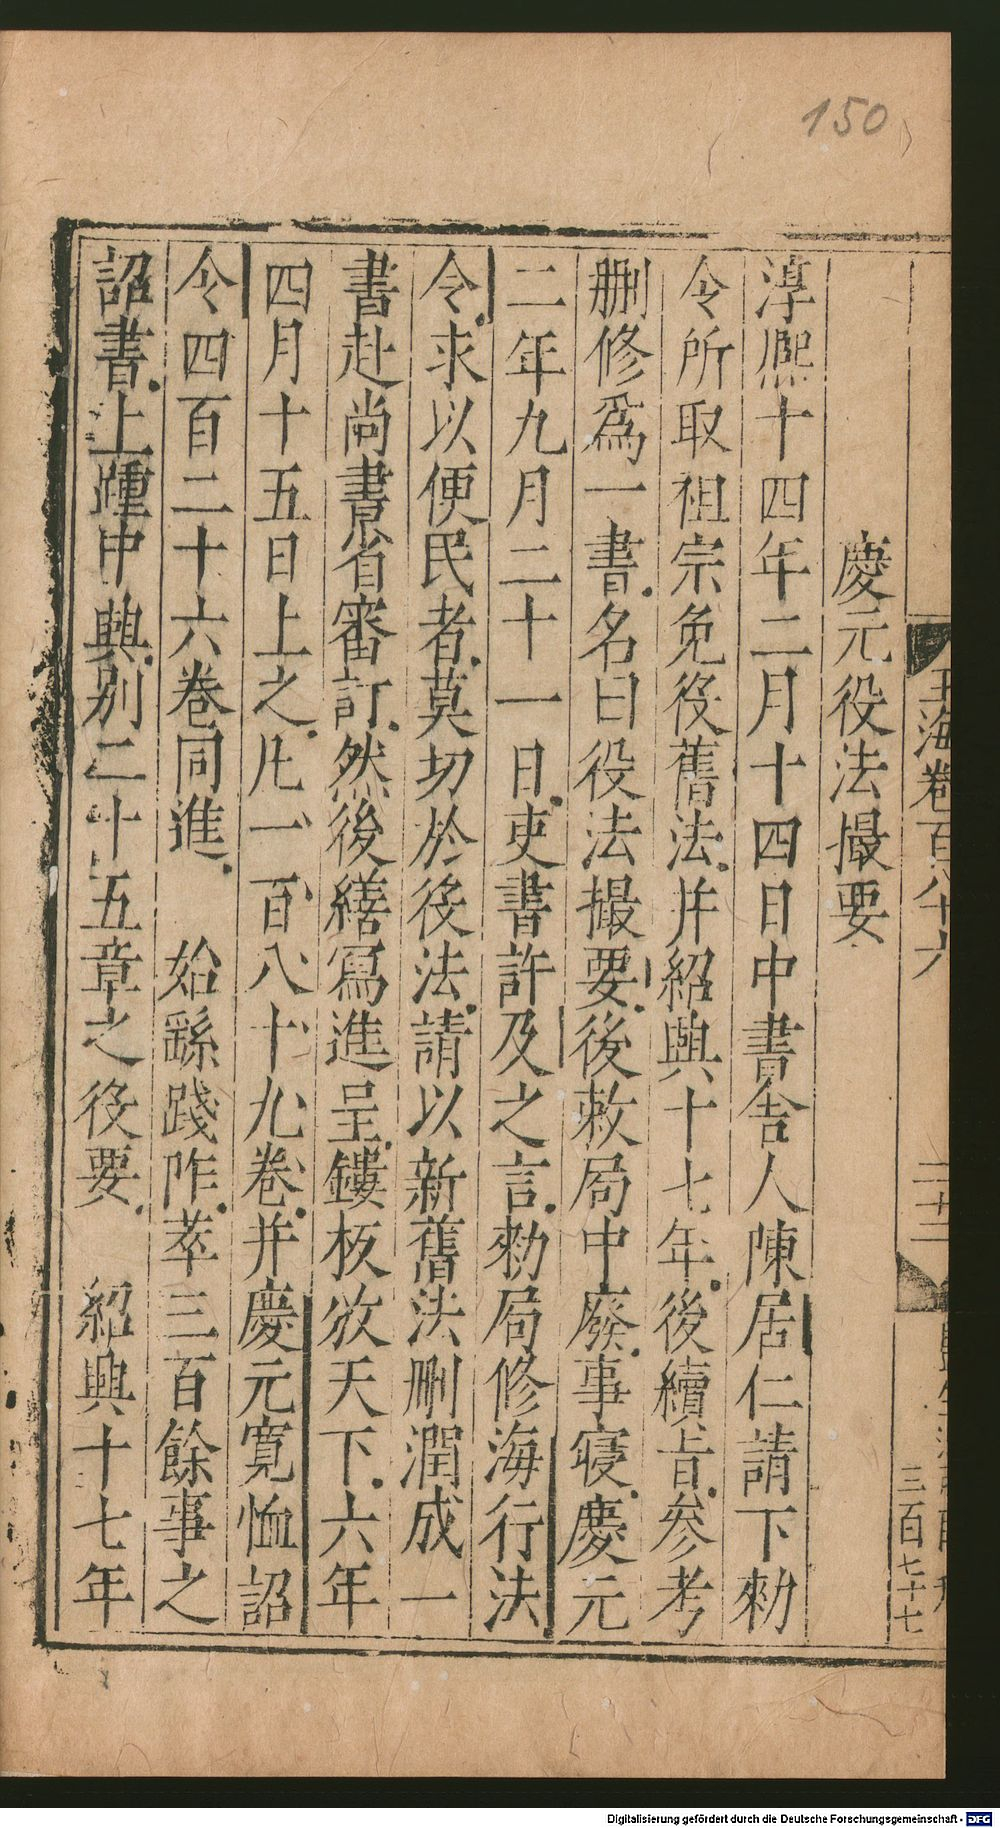 150
玉海卷百八十六
二十二
三百七十七
慶元役法撮要
淳熈十四年二月十四日中書舎人陳居仁請下勑
令所取祖宗免役舊法并紹興十七年後續㫖叅考
删修爲一書名曰役法撮要後敕局中廢事寑慶元
二年九月二十一日吏書許及之言勑局修海行法
令求以便民者莫切於役法請以新舊法删潤成一
書赴尚書省審訂然後繕寫進呈鏤板放天下六年
四月十五日上之凡一百八十九卷并慶元寛恤詔
令四百二十六卷同進　始繇踐阼萃三百餘事之
詔書上踵中興别二十五章之役要　紹興十七年
Digitalisierung gefördert durch die Deutsche Forschungsgemeinschaft - DFG